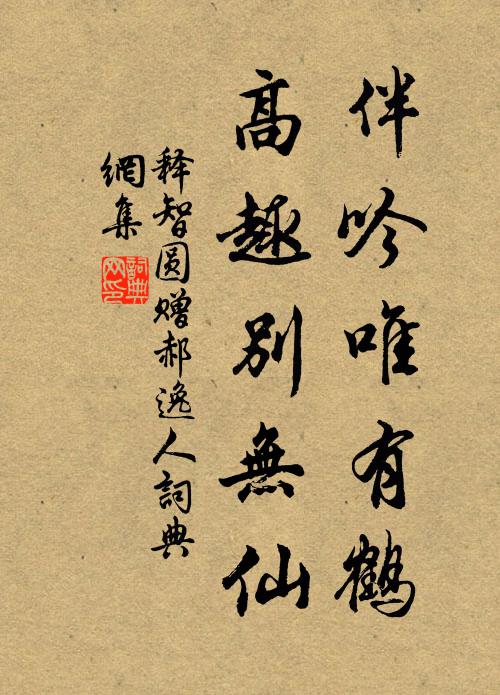 伴吟唯有鶴
高趣別無仙
释智圆赠郝逸人詞典
網集
詞典
网印